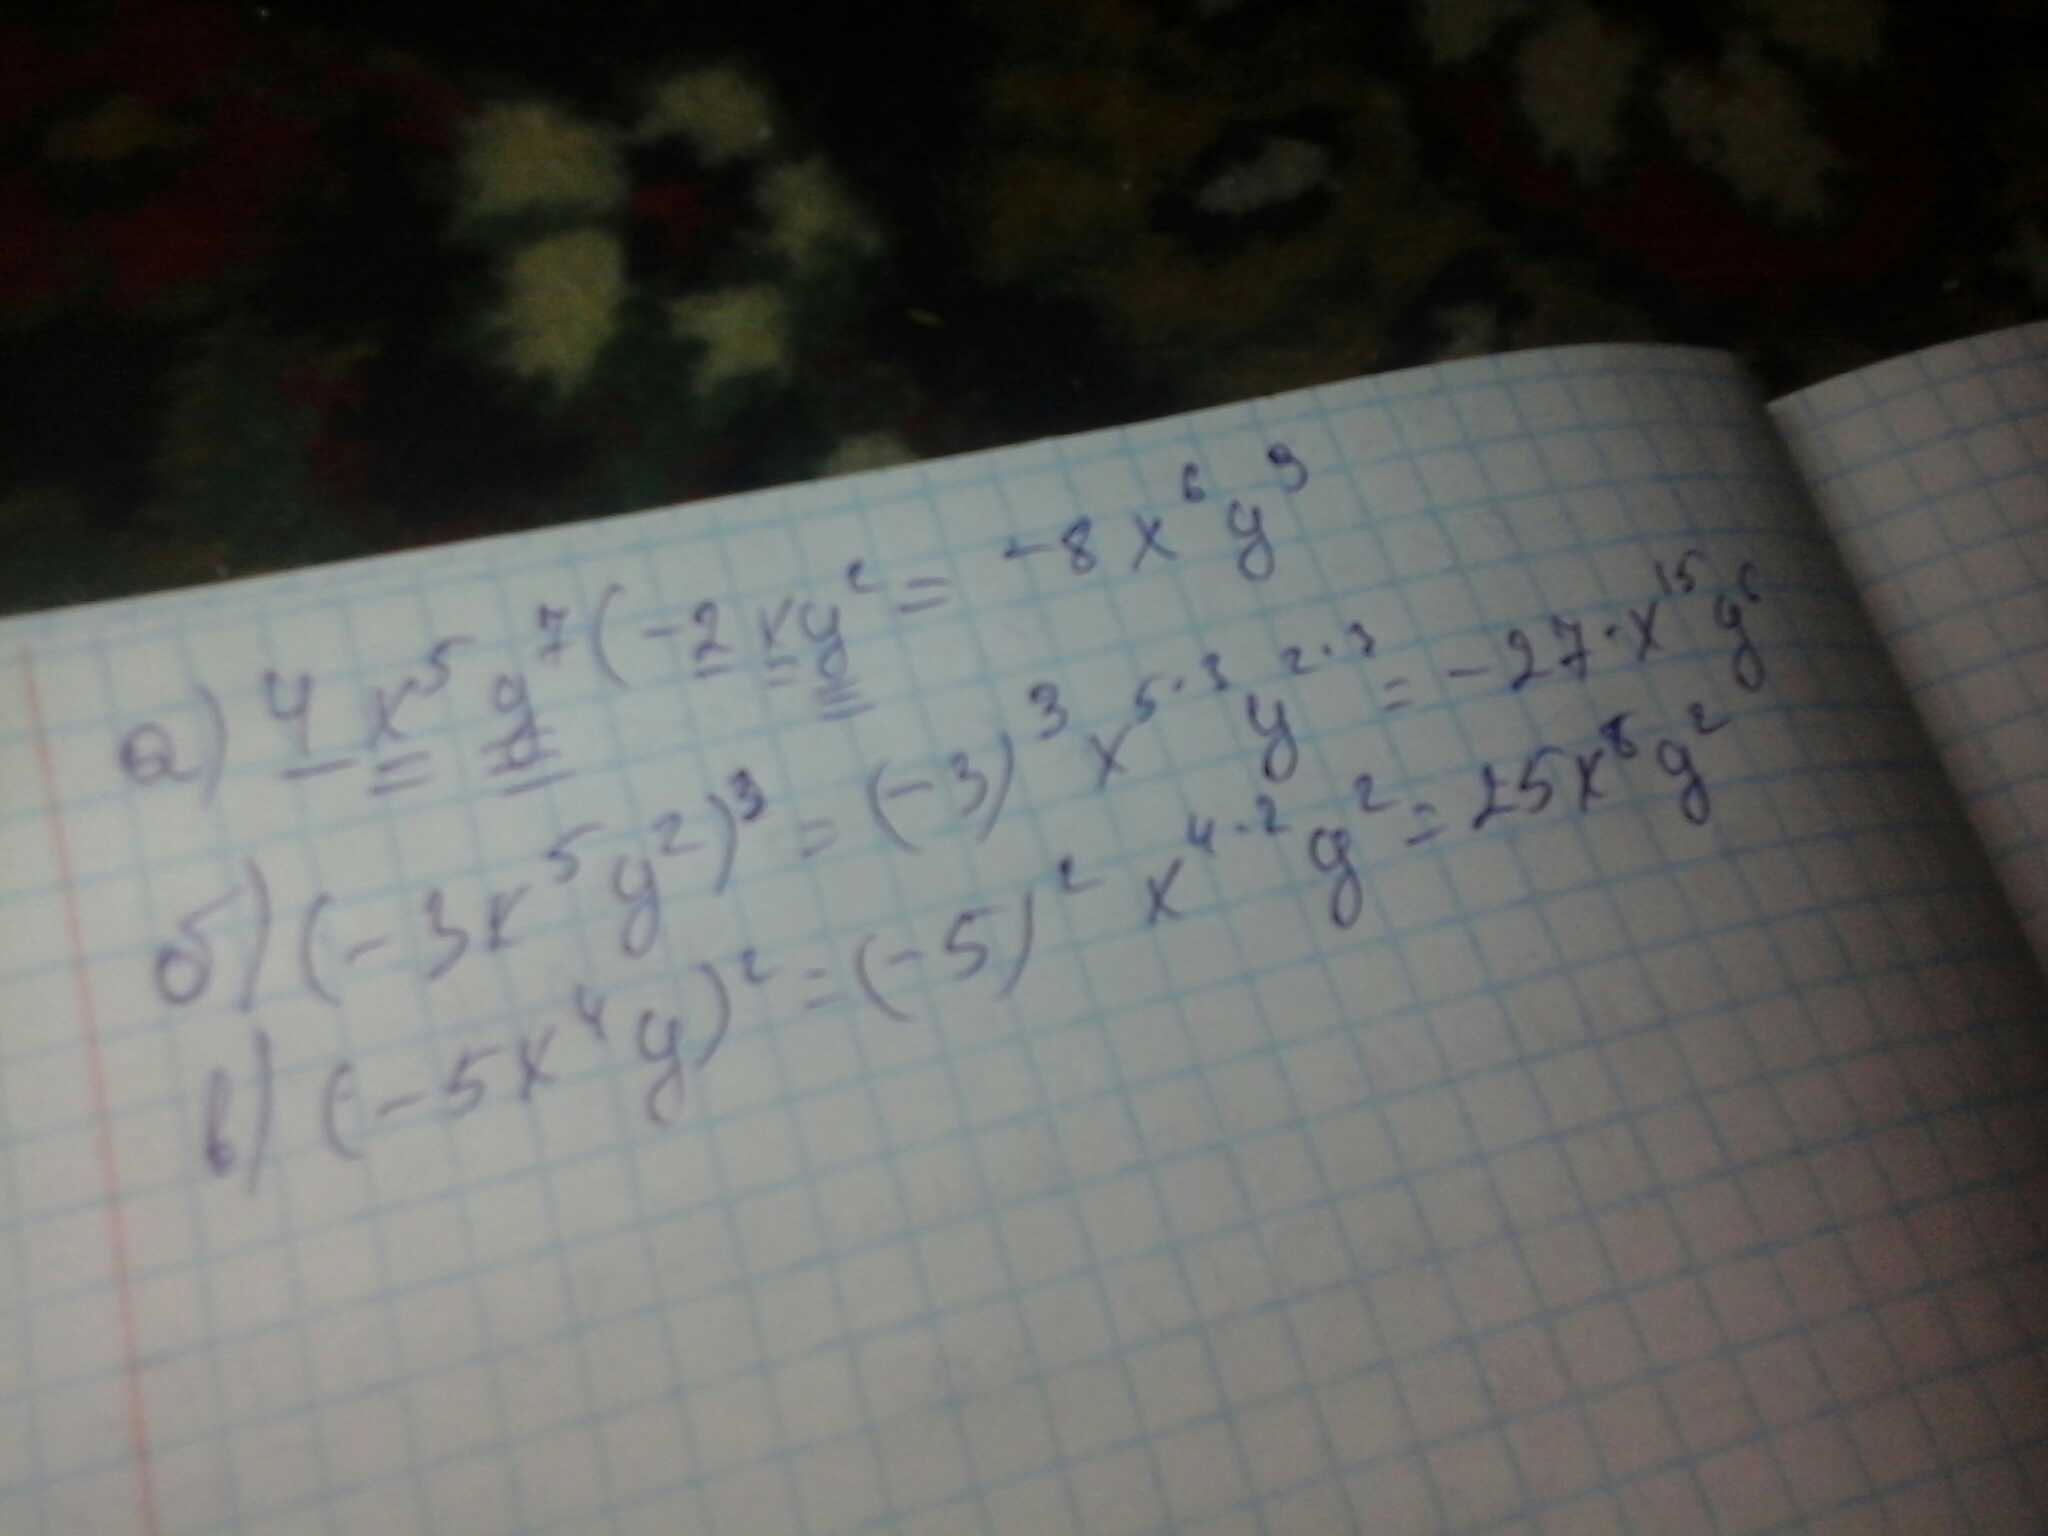 а) 4x⁵y⁷(-2xy² = -8x⁶y⁹
б) (-3x⁵y²)³ = (-3)³x⁵·³y²·³ = -27·x¹⁵y⁶
в) (-5x⁴y)² = (-5)²x⁴·²y² = 25x⁸y²